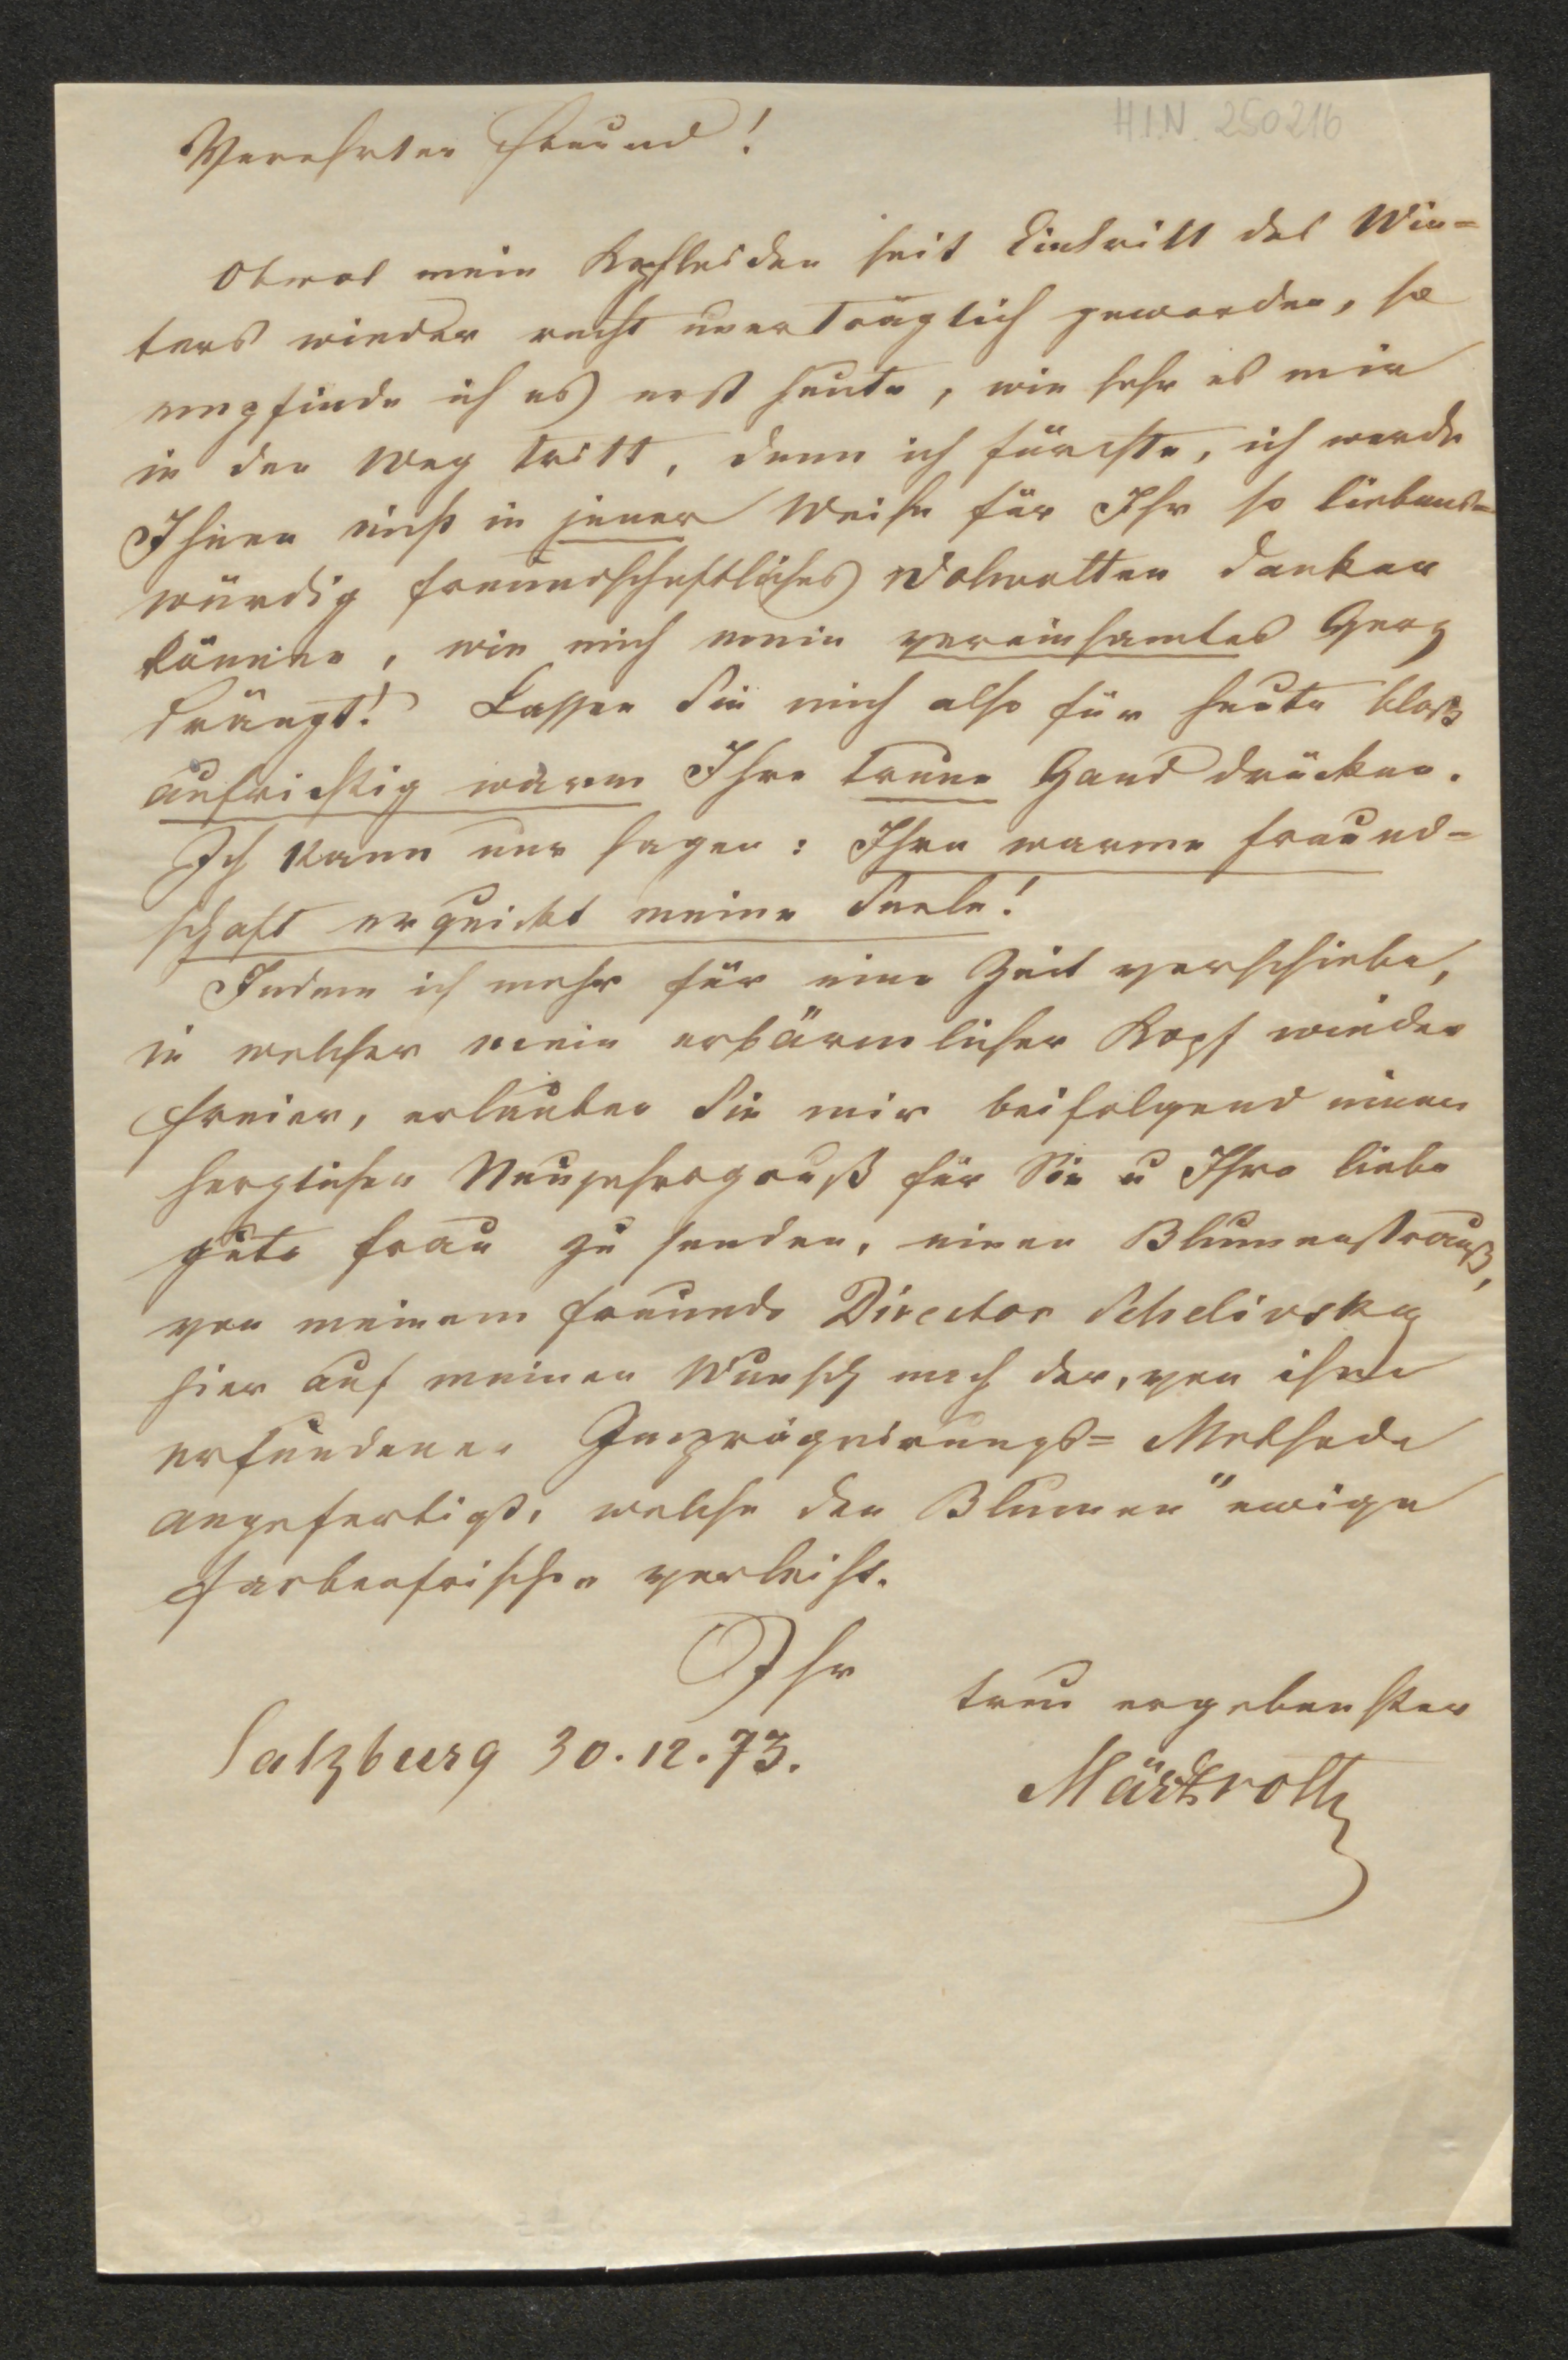 H.I.N. 250216
Verehrter Freund!
Obwol mein Kopfleiden seit Eintritt des Win-
ters wieder recht unerträglich geworden, so
empfinde ich es erst heute, wie sehr es mir
in den Weg tritt, denn ich fürchte, ich werde
Ihnen nicht in jener Weise für Ihr so liebens-
würdig freundschaftliches Wolwollen danken
können, wie mich mein vereinsamtes Herz
drängt! Lassen Sie mich also für heute bloß
aufrichtig warm Ihre treue Hand drücken.
Ich kann nur sagen: Ihre warme Freund-
schaft erquickt meine Seele!
Indem ich mehr für eine Zeit verschiebe,
in welcher mein erbärmlicher Kopf wieder
freier, erlauben Sie mir beifolgend einen
herzlichen Neujahrsgruß für Sie u Ihre liebe
gute Frau zu senden, einen Blumenstrauß,
von meinem Freunde Director Schelivsky
hier auf meinen Wunsch nach der, von ihm
erfundenen Imprägnirungs= Methode
angefertigt, welche den Blumen "ewige
Farbenfrische verleiht.
Ihr
treu ergebenster
Salzburg 30.12.73.